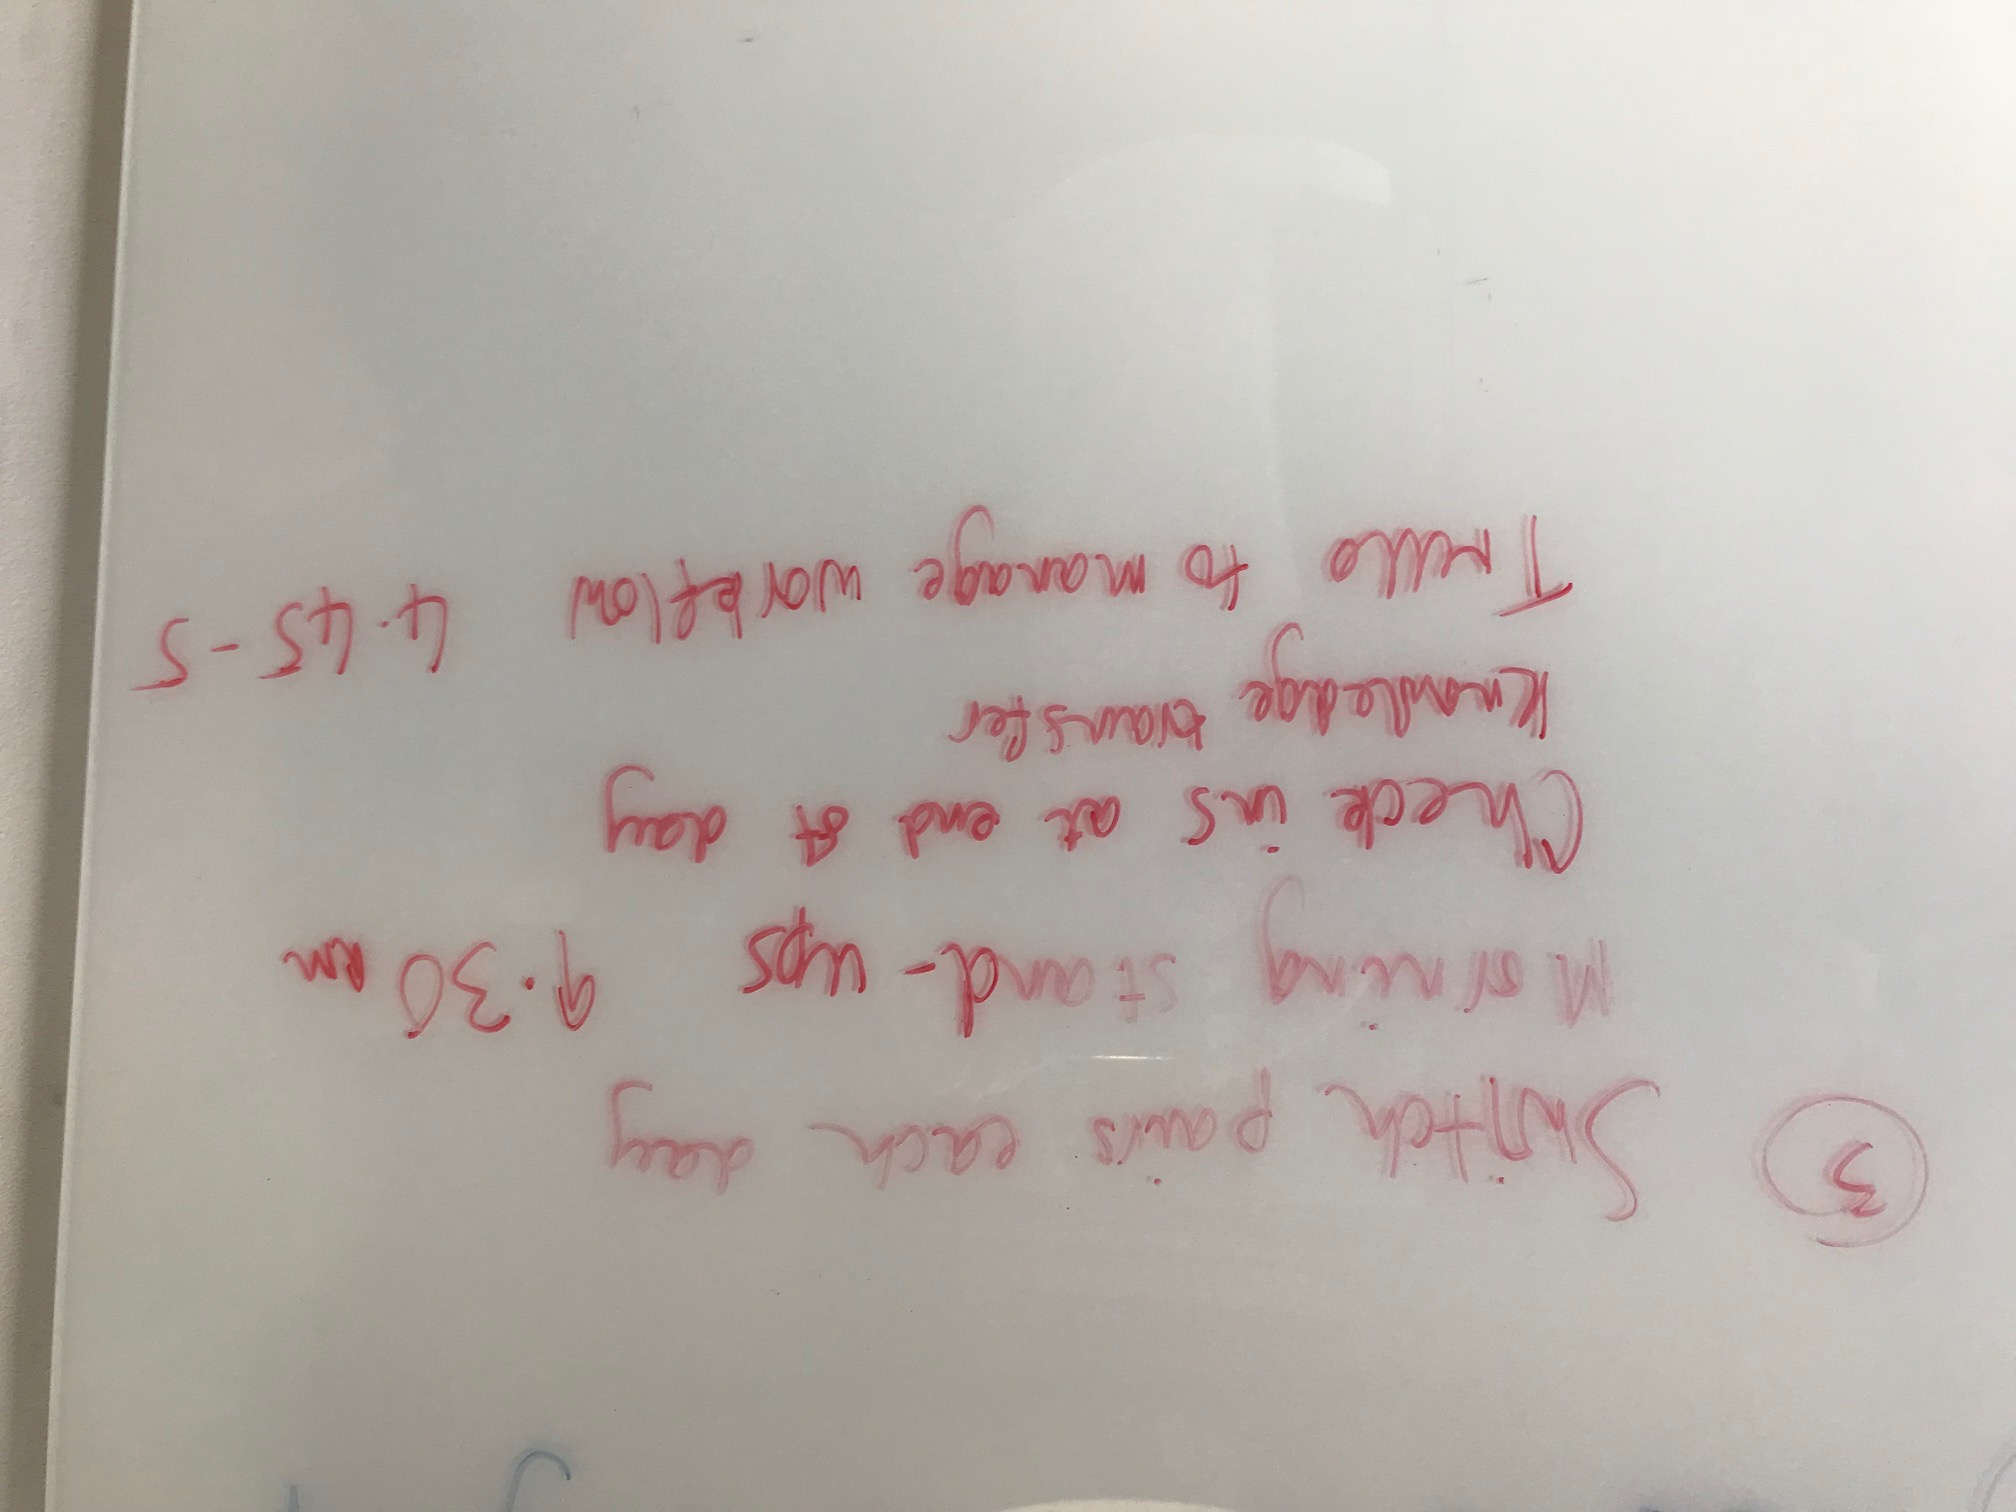 3 Switch pairs each day
Morning stand-ups 9.30 am
Check ins at end of day
Knowledge transfer
Trello to manage workflow 4.45-5